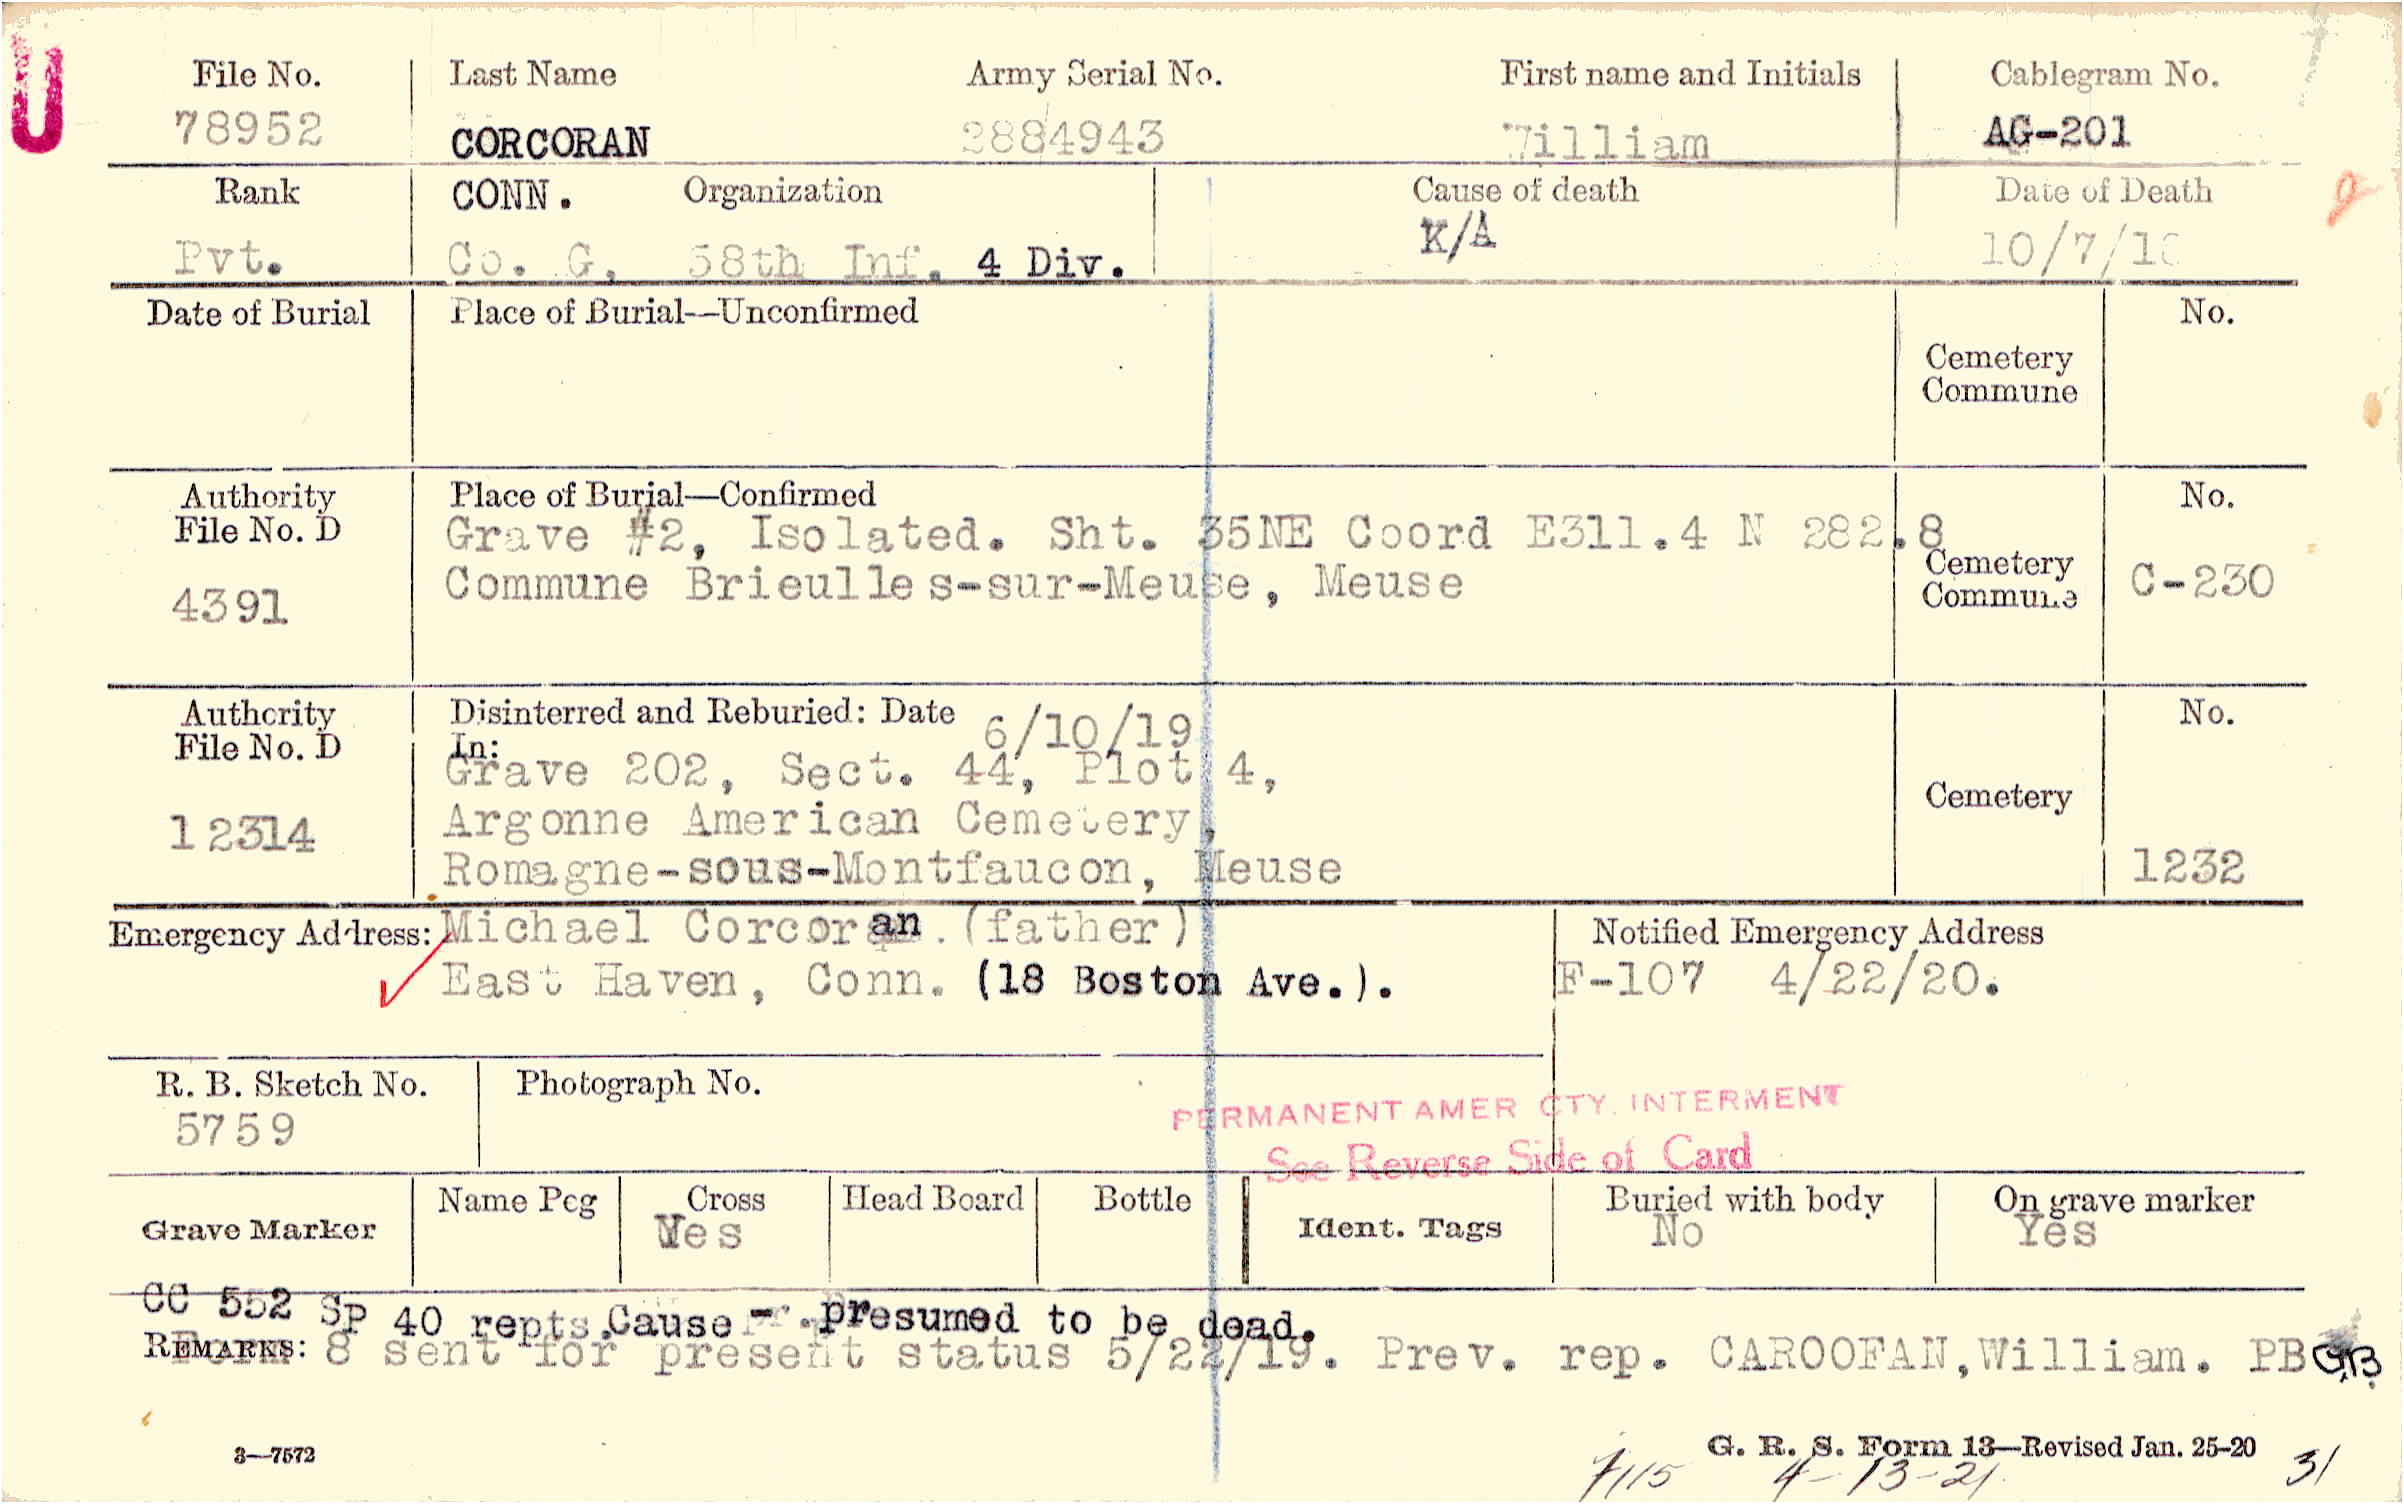 U
File No. Last Name Army Serial No. First name and Initials Cablegram No.
78952 CORCORAN 2884943 William AG-201
Rank CONN. Organization Cause of death Date of Death
Pvt. Co. G, 58th Inf. 4 Div. K/A 10/7/18
Date of Burial Place of Burial—Unconfirmed No.
Cemetery
Commune
Authority Place of Burial—Confirmed No.
File No. D Grave #2, Isolated. Sht. 35NE Coord E311.4 N 282.8
4391 Commune Brieulles-sur-Meuse, Meuse Cemetery Commune C-230
Authority Disinterred and Reburied: Date 6/10/19 No.
File No. D In:
Grave 202, Sect. 44, Plot 4,
12314 Argonne American Cemetery, Cemetery
Romagne-sous-Montfaucon, Meuse 1232
Emergency Address: Michael Corcoran. (father) Notified Emergency Address
East Haven, Conn. (18 Boston Ave.). F-107 4/22/20.
R. B. Sketch No. Photograph No.
5759
PERMANENT AMER CTY. INTERMENT
See Reverse Side of Card
Grave Marker Name Peg Cross Head Board Bottle Ident. Tags Buried with body On grave marker
Yes No Yes
CC 552 SP 40 repts. Cause - presumed to be dead.
REMARKS: Form 8 sent for present status 5/22/19. Prev. rep. CAROOFAN, William. PB GB
3—7572 G. R. S. Form 13—Revised Jan. 25-20
7115 4-13-21 31